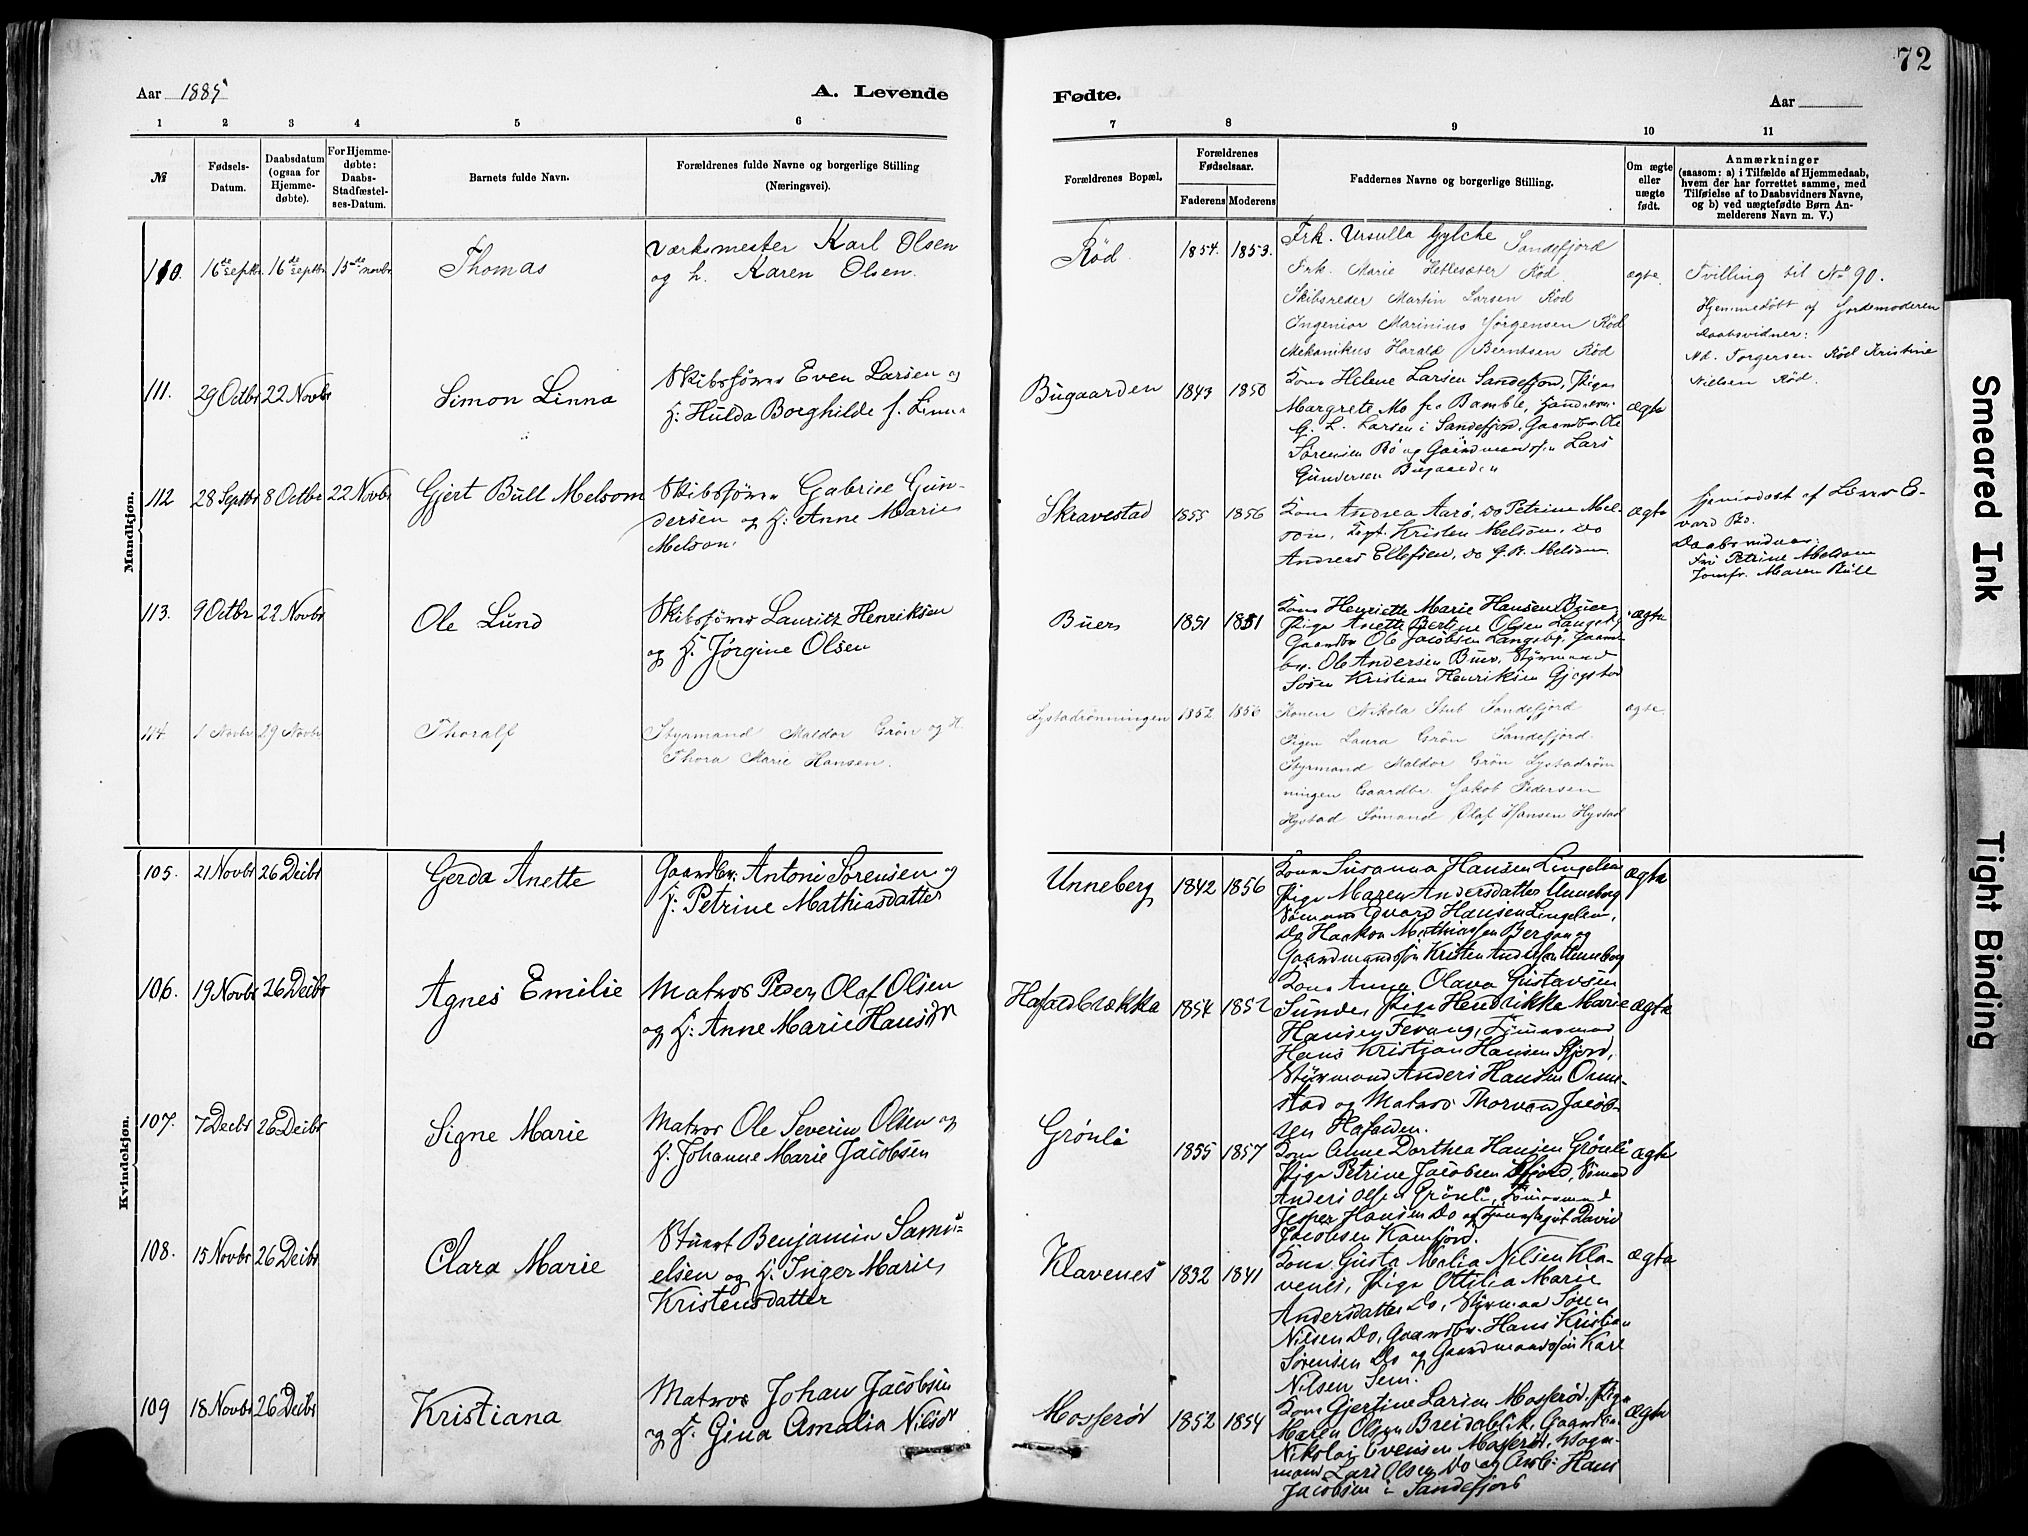 72
Aar 1885
A. Levende
Fødte.
Aar
1 2 3 4 5 6 7 8 9 10 11
№
Fødsels-
Datum.
Daabsdatum
(ogsaa for
Hjemme-
døbte).
For Hjemme-
døbte:
Daabs-
Stadfæstel-
ses-Datum.
Barnets fulde Navn.
Forældrenes fulde Navne og borgerlige Stilling
(Næringsvei).
Forældrenes Bopæl.
Forældrenes
Fødselsaar.
Faderens Moderens
Faddernes Navne og borgerlige Stilling.
Om ægte
eller
uægte
født.
Anmærkninger
(saasom: a) i Tilfælde af Hjemmedaab,
hvem der har forrettet samme, med
Tilføielse af to Daabsvidners Navne,
og b) ved uægtefødte Børn An-
melderens Navn m. V.)
Mandkjøn.
110. 16de septbr 16de septbr 15de novbr Thomas
Værksmester Karl Olsen
og h. Karen Olsen.
Rød 1854. 1853.
Frk. Ursulla Gylche Sandefjord
Frk. Marie Hetlesæter Rød
Skibsreder Martin Larsen Rød
Ingeniør Marinius Jørgensen Rød
Mekanikus Harald Berntsen Rød
ægte.
Tvilling til No 90.
Hjemmedøbt af Jordemoderen
Daabsvidner:
Md. Torgersen Rød Kristine
Nielsen Rød.
111. 29 Octbr 22 Novbr Simon Linna
Skibsfører Even Larsen og
H: Hulda Borghilde f. Linna
Bugaarden 1843 1850
Kone Helene Larsen Sandefjord, Pige
Margrete Mo fra Bamble,
G. L. Larsen i Sandefjord, Gaardbr Ole
Sørensen Bø og Gaardmandssøn Lars
Gundersen Bugaarden
ægte
112 28 Septbr 8 Octbr 22 Novbr Gjert Bull Melsom
Skibsfører Gabriel Gun-
dersen og H: Anne Marie
Melsom.
Skravestad 1855 1856
Kone Andrea Aarø, Do Petrine Mel-
som, Kristen Melsom, Do
Andreas Ellefsen, Do G. B. Melsom
ægte
Hjemmedøbt af Lærer E-
vard Bø.
Daabsvidner:
Petrine Melsom
Jomfr. Maren Bull
113. 9 Octbr 22 Novbr Ole Lund
Skibsfører Lauritz Henriksen
og H. Jørgine Olsen
Buer 1851 1851
Kone Henriette Marie Hansen Buer
Pige Anette Bertine Olsen Langeby
Gaardbr Ole Jacobsen Langeby, Gaard-
br. Ole Andersen Buer, Styrmand
Søren Kristian Henriksen Gjegstad
ægte
114. 1 Novbr 29 Novbr Thoralf
Styrmand Maldor Grøn og H.
Thora Marie Hansen.
Lystadrønningen 1852 1856
Konen Nikola Stub Sandefjord
Pigen Laura Grøn Sandefjord.
Styrmand Maldor Grøn Lystadrøn
ningen Gaardbr. Jakob Pedersen
Hystad Sømand Olaf Hansen Hystad
ægte.
Kvindekjøn.
105. 21 Novbr 26 Decbr Gerda Anette
Gaardbr. Antoni Sørensen og
H: Petrine Mathiasdatter
Unneberg 1842 1856
Kone Susanna Hansen Lingelem
Pige Maren Andersdatter Unneberg
Sømand Evard Hansen Lingelem,
Do Haakon Mathiassen Bergan og
Gaardmandssøn Kristen Andersen Unneberg
ægte
106. 19 Novbr 26 Decbr Agnes Emilie
Matros Peder Olaf Olsen
og H: Anne Marie Hansdtr
Hafaldbrækka 1854 1852
Kone Anne Olava Gustavsen
Sunde, Pige Hendrikka Marie
Hansen Fevang, Tømmermand
Hans Kristian Hansen Fjord,
Styrmand Anders Hansen Orme-
stad og Matros Thorvald Jacob-
sen Hafalden.
ægte
107. 7 Decbr 26 Decbr Signe Marie
Matros Ole Severin Olsen og
H: Johanne Marie Jacobsen
Grønli 1855 1857
Kone Anne Dorthea Hansen Grønli
Pige Petrine Jacobsen Fjord, Sømand
Anders Olsen Grønli, Tømmermand
Jesper Hansen Do og David
Jacobsen Kamfjord.
ægte
108. 15 Novbr 26 Decbr Clara Marie
Stuert Benjamin Samu-
elsen og H. Inger Marie
Kristensdatter
Klavenes 1832 1841
Kone Gusta Malia Nilsen Kla-
venes, Pige Ottilia Marie
Andersdatter Do, Styrma Søren
Nilsen Do, Gaardbr. Hans Kristian
Sørensen Do og Gaardmandssøn Karl
Nilsen Sem.
ægte
109 18 Novbr 26 Decbr Kristiana
Matros Johan Jacobsen
og H. Gina Amalia Nilsdtr
Mosserød 1852 1854
Kone Gjertine Larsen Mosserød, Pige
Maren Olsen Breidablik, Gaardbr.
Nikolai Evensen Mosserød, Vogn-
mand Lars Olsen Do og Arb: Hans
Jacobsen i Sandefjord
ægte
Smeared Ink
Tight Binding